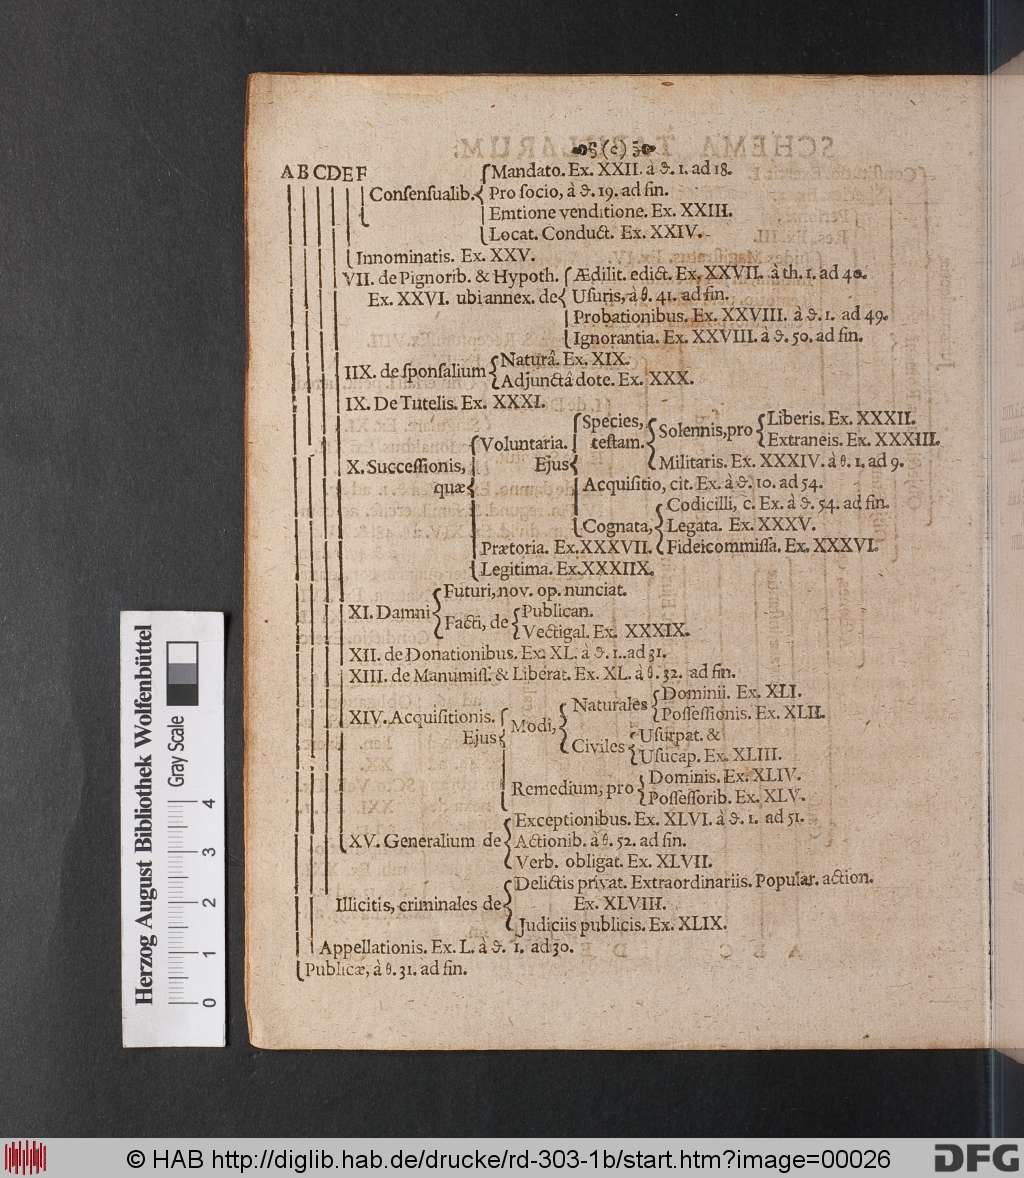 (c)
A B C D E F
Mandato. Ex. XXII. à ϑ. 1. ad 18.
Consensualib.
Pro socio, à ϑ. 19. ad fin.
Emtione venditione. Ex. XXIII.
Locat. Conduct. Ex. XXIV.
Innominatis. Ex. XXV.
VII. de Pignorib. & Hypoth. Ædilit. edict. Ex. XXVII. à th. 1. ad 40.
Ex. XXVI. ubi annex. de Usuris, à θ. 41. ad fin.
Probationibus. Ex. XXVIII. à ϑ. 1. ad 49.
Ignorantia. Ex. XXVIII. à ϑ. 50. ad fin.
Naturâ. Ex. XIX.
IIX. de sponsalium
Adjunctâ dote. Ex. XXX.
IX. De Tutelis. Ex. XXXI.
Species, Liberis. Ex. XXXII.
Solennis, pro
Voluntaria. testam. Extraneis. Ex. XXXIII.
X. Successionis, Ejus Militaris. Ex. XXXIV. à θ. 1. ad 9.
quæ Acquisitio, cit. Ex. à ϑ. 10. ad 54.
Codicilli, c. Ex. à ϑ. 54. ad fin.
Cognata, Legata. Ex. XXXV.
Prætoria. Ex. XXXVII. Fideicommissa. Ex. XXXVI.
Legitima. Ex. XXXIIX.
Futuri, nov. op. nunciat.
XI. Damni Publican.
Facti, de
Vectigal. Ex. XXXIX.
XII. de Donationibus. Ex. XL. à ϑ. 1. ad 31.
XIII. de Manumiss. & Liberat. Ex. XL. à θ. 32. ad fin.
Dominii. Ex. XLI.
Naturales
XIV. Acquisitionis. Possessionis. Ex. XLII.
Modi,
Ejus Usurpat. &
Civiles
Usucap. Ex. XLIII.
Dominis. Ex. XLIV.
Remedium, pro
Possessorib. Ex. XLV.
Exceptionibus. Ex. XLVI. à ϑ. 1. ad 51.
XV. Generalium de Actionib. à θ. 52. ad fin.
Verb. obligat. Ex. XLVII.
Delictis privat. Extraordinariis. Popular. action.
Illicitis, criminales de Ex. XLVIII.
Judiciis publicis. Ex. XLIX.
Appellationis. Ex. L. à ϑ. 1. ad 30.
Publicæ, à θ. 31. ad fin.
Herzog August Bibliothek Wolfenbüttel
Gray Scale
0 1 2 3 4
© HAB http://diglib.hab.de/drucke/rd-303-1b/start.htm?image=00026
DFG